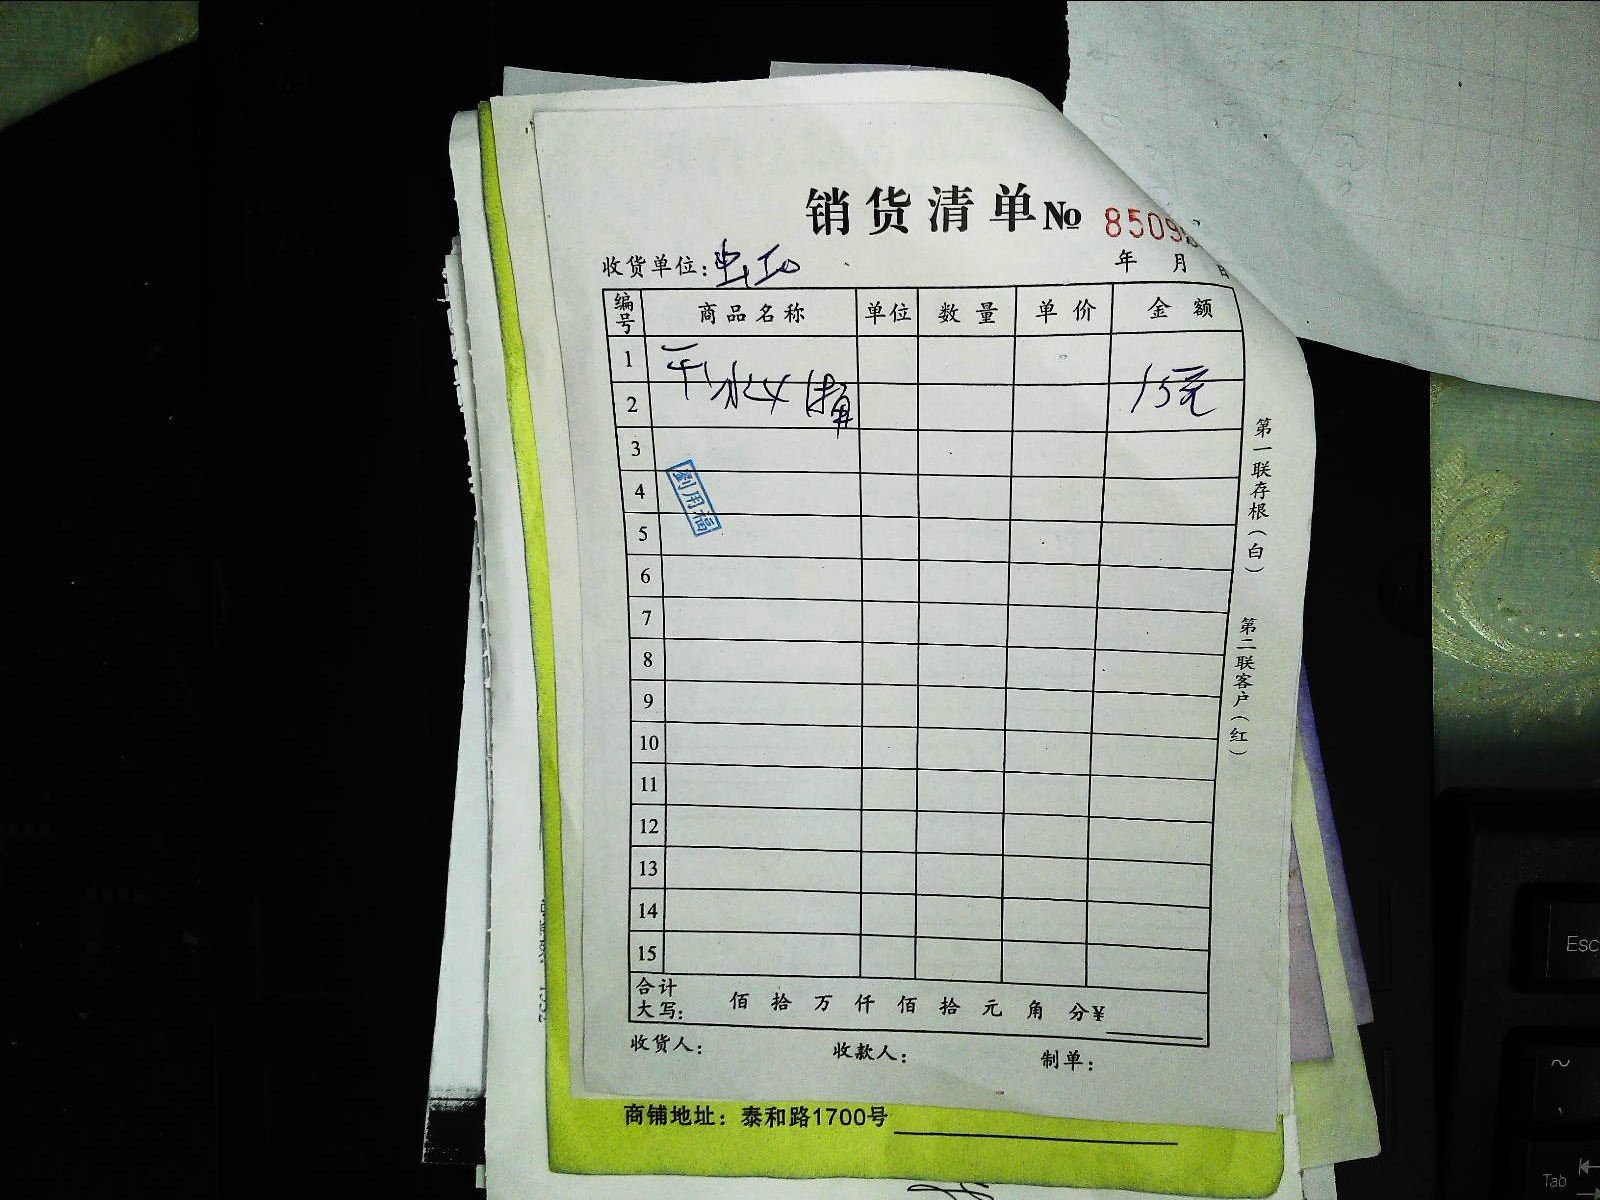 销货清单 № 8509
收货单位:
年 月 日
编号 商品名称 单位 数量 单价 金额
1
2 15元
3
4
5
6
7
8
9
10
11
12
13
14
15
劉用福
合计
大写: 佰 拾 万 仟 佰 拾 元 角 分 ¥
收货人: 收款人: 制单:
第一联存根(白)
第二联客户(红)
商铺地址: 泰和路1700号
Esc
~
Tab